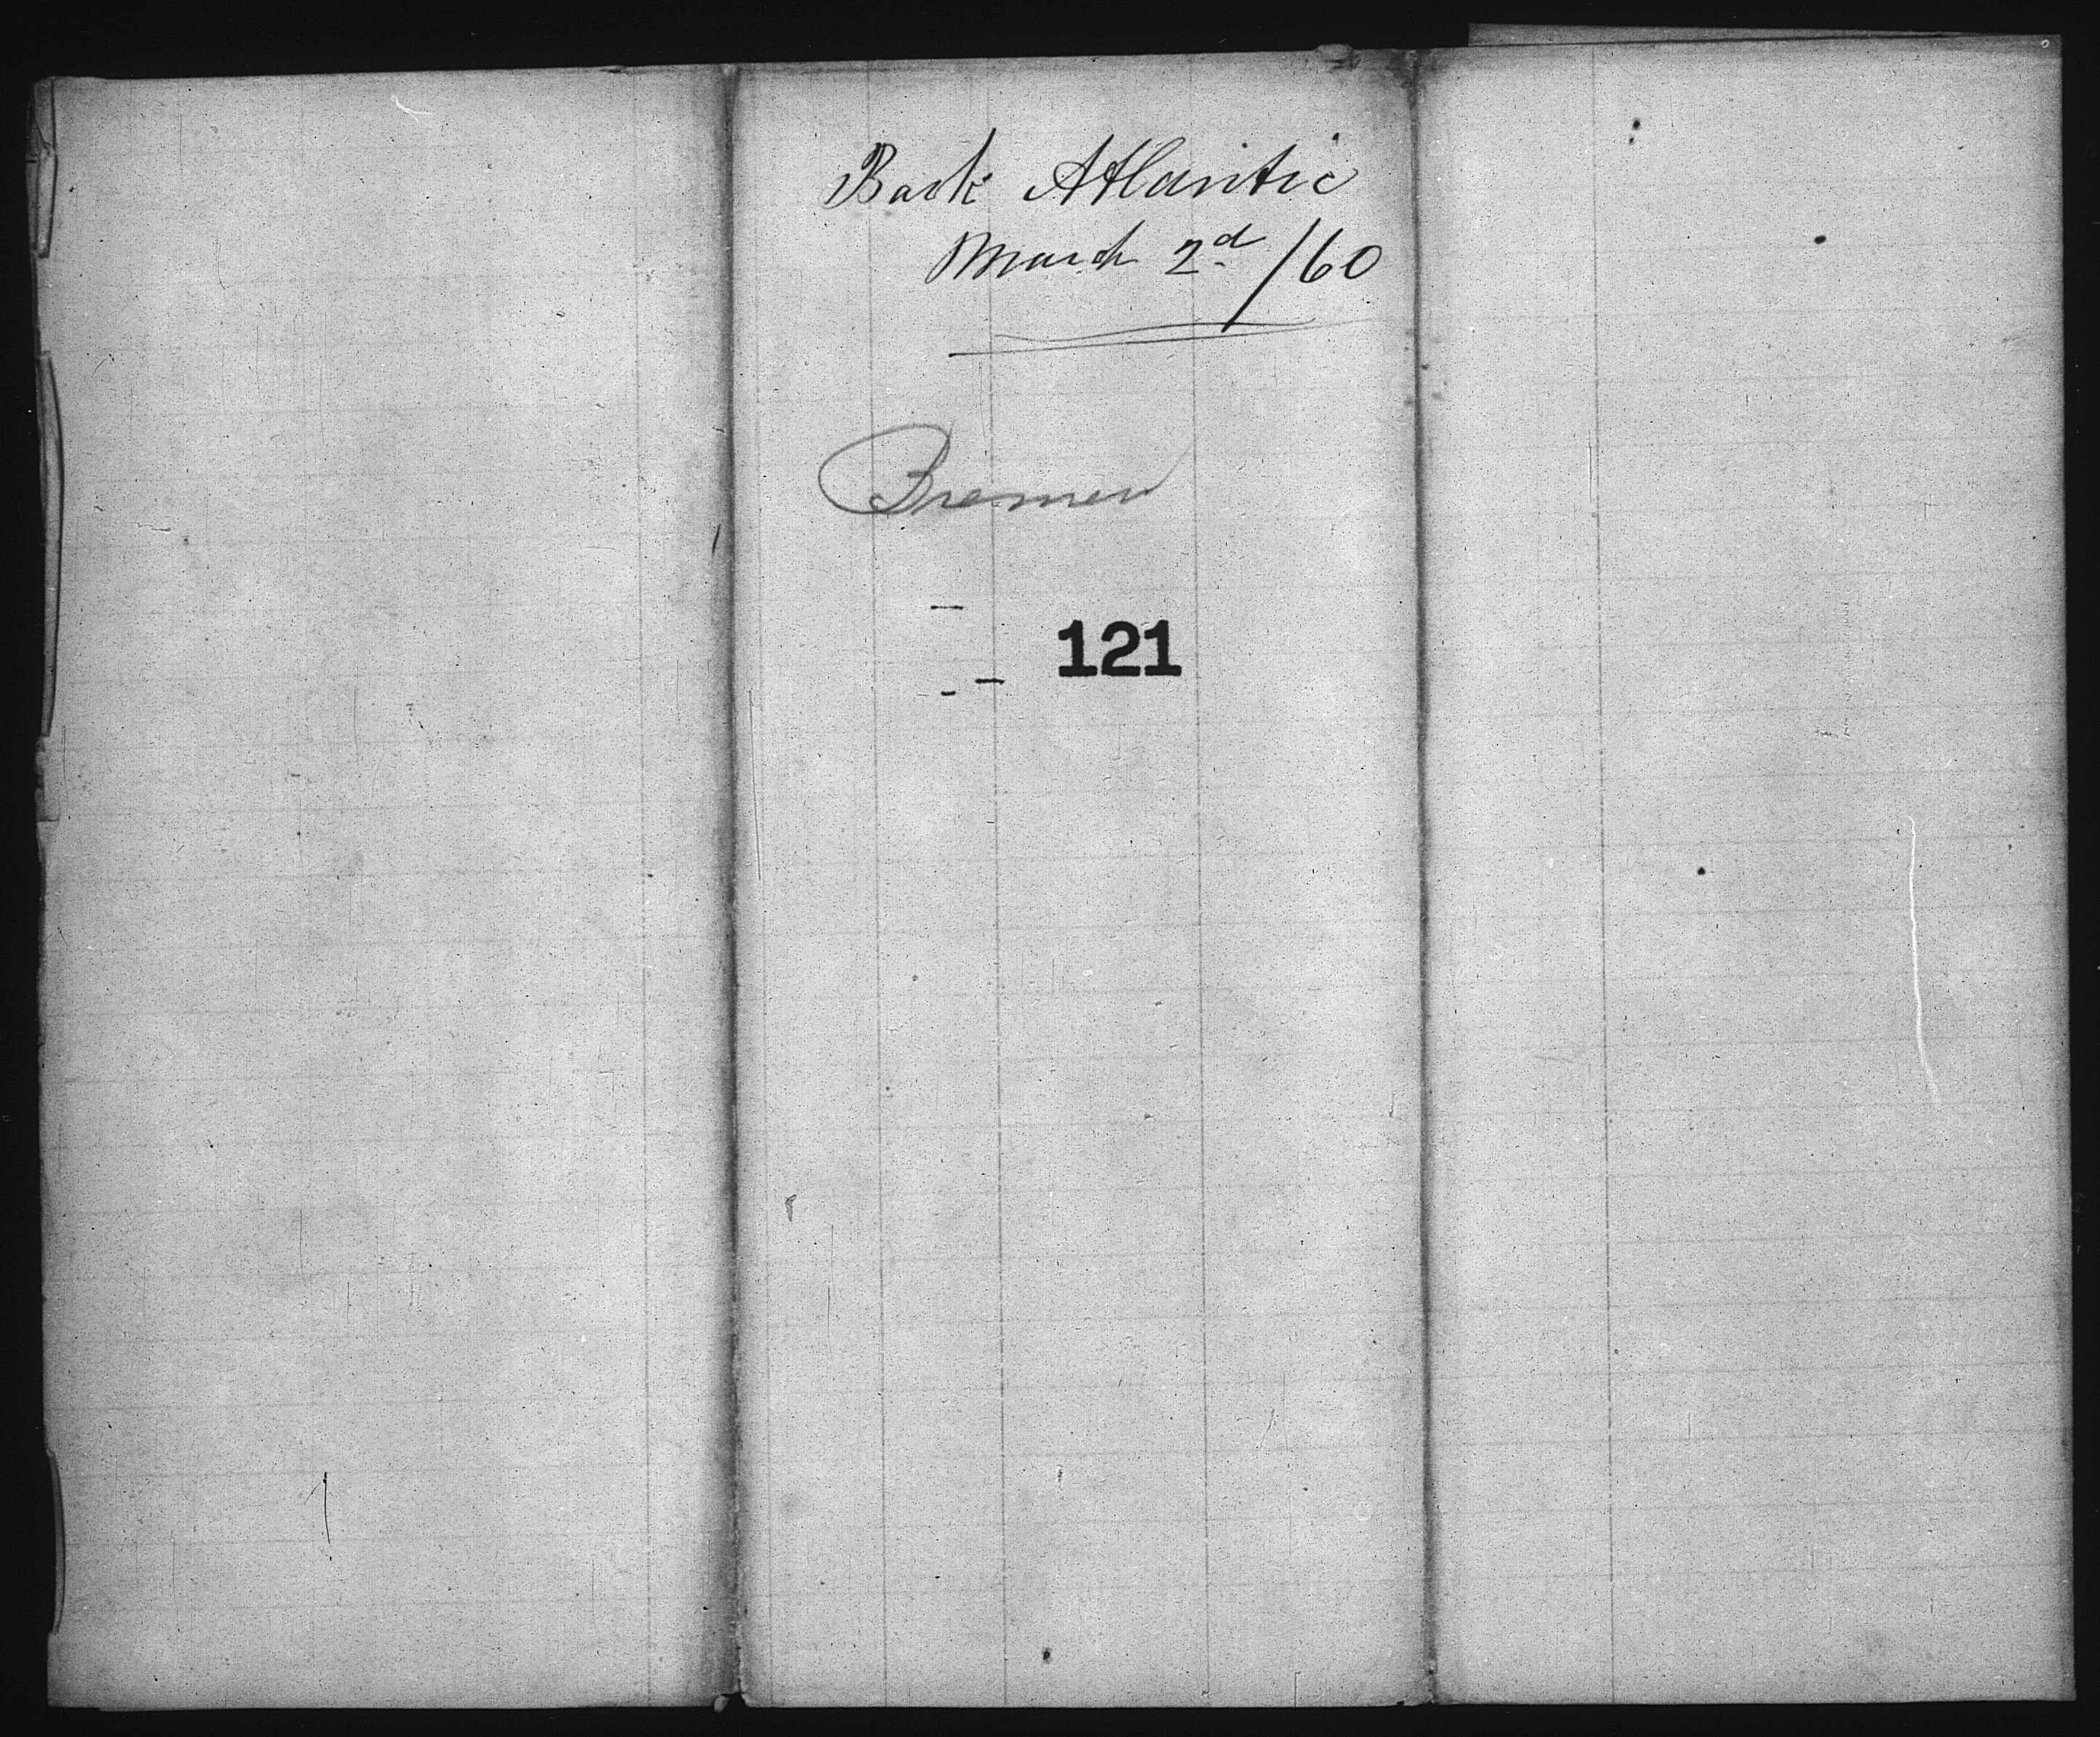 Bark Atlantic
March 2d /60
Bremen
121